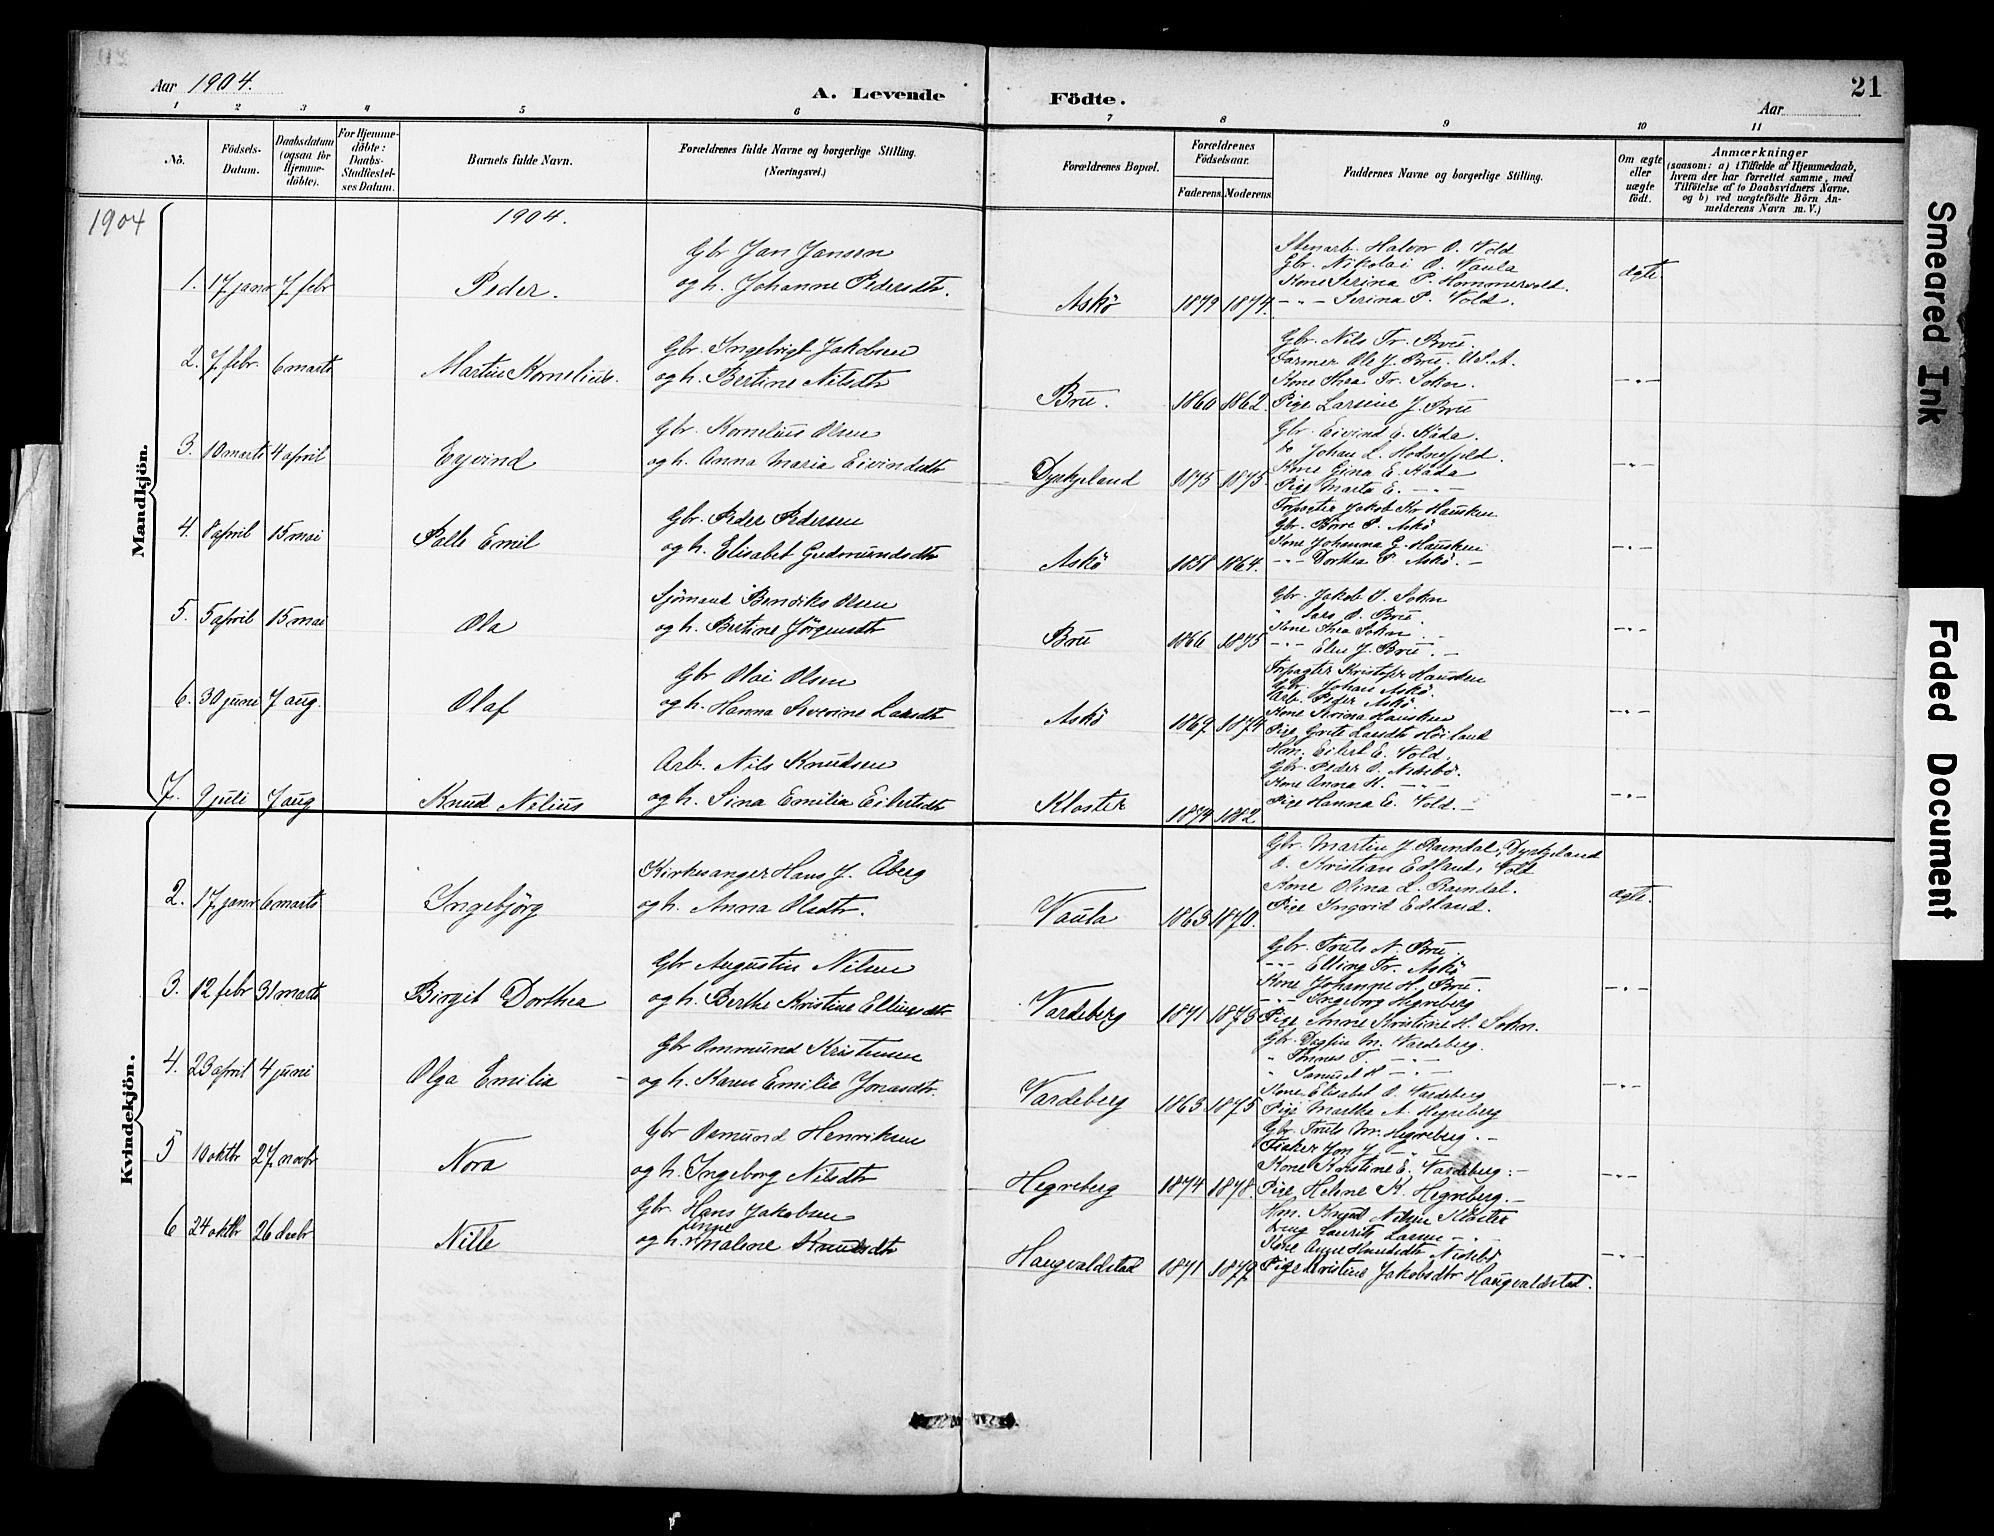 Aar 1904.
A. Levende
Födte.
Aar
21
1
2
3
4
5
6
7
8
9
10
11
No.
Födsels-
Datum.
Daabsdatum
(ogsaa for
Hjemme-
döbte).
For Hjemme-
döbte:
Daabs-
Stadfæstel-
ses Datum.
Barnets fulde Navn.
Forældrenes fulde Navne og borgerlige Stilling.
(Næringsvei.)
Forældrenes Bopæl.
Forældrenes
Födselsaar.
Faderens.
Moderens.
Faddernes Navne og borgerlige Stilling.
Om ægte
eller
uægte
födt.
Anmærkninger
(saasom: a) i Tilfælde af Hjemmedaab,
hvem der har forrettet samme, med
Tilföielse af to Daabsvidners Navne.
og b) ved uægtefödte Börn An-
melderens Navn m. V.)
1904
1904.
Mandkjön.
1. 17 janr 7 febr
Peder.
Gbr Jan Jansen
og h. Johanne Pedersdtr.
Askö
1879 1874.
Stenarb. Halvor O. Vold
Gbr. Nikolai O. Vaula
Kone Serina P. Hommersvold.
-"- Serina P. Vold.
ægte
2. 7 febr. 6 marts
Martin Kornelius.
Gbr. Ingebrigt Jakobsen
og h. Bertine Nilsdtr
Bru.
1860 1862.
Gbr. Nils Tr. Bru.
Farmer Ole J. Bru. U.S.A.
Kone Thea Tr. Sokn.
Pige Larsine J. Bru
-"-
3. 10 marts 4 april
Eyvind
Gbr. Kornelius Olsen
og h. Anna Maria Eivindsdtr
Dyskjeland
1875 1875.
Gbr. Eivind E. Aada.
Do Johan L. Hodnefjeld.
Kone Gina E. Aada
Pige Marta E. -"-
-"-
4. 8 april 15 mai
Palle Emil
Gbr. Peder Pedersen
og h. Elisabet Gudmundsdtr
Askö
1858 1864.
Forpagter Jakob Kr Hausken
Gbr. Börre P. Askö
Kone Johanna G. Hausken
-"- Dorthea P. Askö.
-"-
5. 5 april 15 mai
Ola
Sjömand Bendiks Olsen
og h. Bertine Jörgensdtr
Bru
1866 1875
Gbr. Jakob O. Sokn
" Lars O. Bru.
Kone Thea Sokn
-"- Elen J. Bru.
-"-
6. 30 juni 7 aug.
Olaf
Gbr Olai Olsen
og h. Hanna Severine Larsdtr
Askö
1867 1874
Forpagter Kristofer Hausken
Gbr. Johan Askö.
Arb. Peder Askö.
Kone Serina Hausken
Pige Grete Larsdtr Höiland
-"-
7. 9 juli 7 aug
Knud Nelius
Arb. Nils Knudsen
og h. Sina Emilia Eilertsdtr
Kloster
1874 1882
Hm. Eilert E. Vold.
Gbr. Peder O. Nesebö.
Kone Anna K. -"-
Pige Hanna E. Vold.
-"-
Kvindekjön.
2. 17 janr 6 marts
Ingebjörg
Kirkesanger Hans J. Åberg
og h. Anna Olsdtr.
Vaula
1863 1870.
Gbr. Martin J. Ramdal, Dyskjeland
Kristian Edland, Vold
Kone Olina L. Ramdal.
Pige Ingvid Edland.
ægte.
3. 12 febr 31 marts
Birgit Dorthea
Gbr Augustin Nilsen
og h. Berthe Kristine Ellingsdtr
Vardeberg
1871 1873
Gbr. Truls N. Bru.
-"- Elling Tr. Askö
Kone Johanne H. Bru.
-"- Ingeborg Hegreberg
Pige Anne Kristine H. Sokn.
-"-
4. 23 april 4 juni
Olga Emilia
Gbr Ommund Kristensen
og h. Karen Emilie Jonasdtr.
Vardeberg
1863 1875
Gbr. M. Vardeberg.
" Tönnes T. -"-
" Samuel H -"-
Kone Elisabet O. Vardeberg
Pige Martha A. Hegreberg
-"-
5 10 oktbr 27 novbr
Nora
Gbr Osmund Henriksen
og h. Ingeborg Nilsdtr
Hegreberg
1874 1878
Gbr. Truls M. Hegreberg.
Fisker Jon J. -"-
Kone Kristine E. Vardeberg.
Pige Helene K. Hegreberg.
-"-
6 24 oktbr 26 decbr
Nille
Gbr. Hans Jakobsen
og h. Malene Knudsdtr
Haugvaldstad
1871 1877
Hm. Knud Nilsen Kloster
Ung Laurits Larsen -"-
Kone Anne Knudsdtr Nesebö
Pige Kristine Jakobsdtr Haugvaldstad.
-"-
Smeared Ink
Faded Document